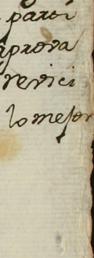 parei
aprova
revici
lo mejor